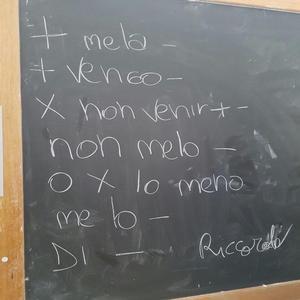 + mela -
+ vengo -
x non venir + -
non melo -
o x lo meno
me lo -
DI - Riccardo